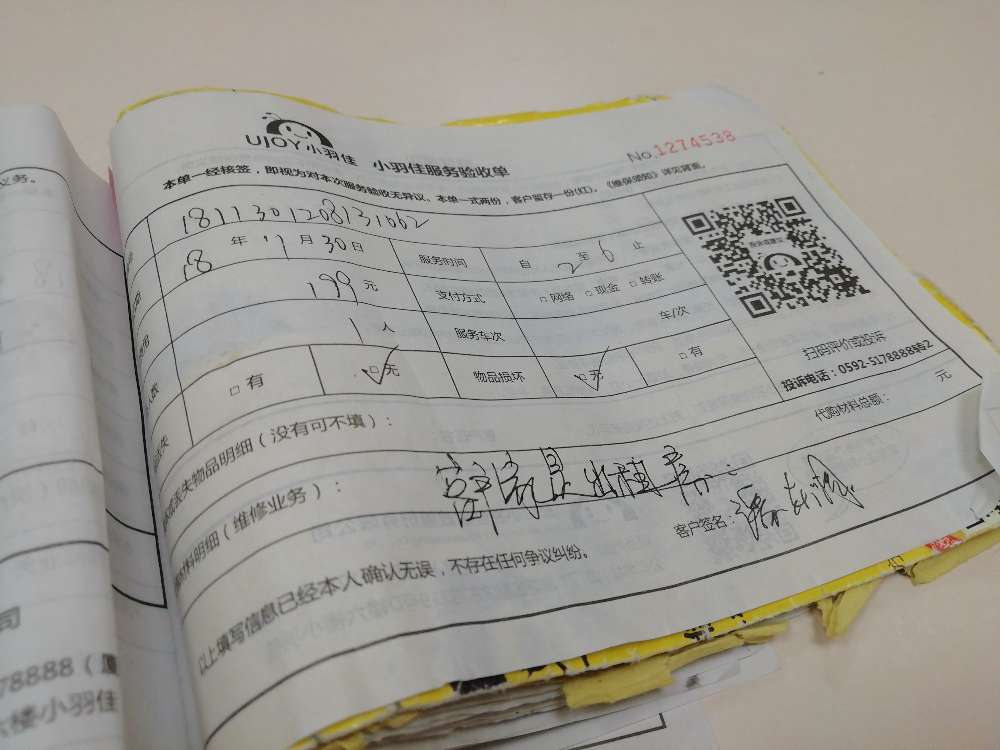 UJOY小羽佳 小羽佳服务验收单
No.1274538
本单一经核签，即视为对本次服务验收无异议。本单一式两份，客户留存一份(红)，《维保须知》详见背面。
1811301208131062
18 年 11 月 30 日 服务时间 自 2 至 6 止
199 元 支付方式 □ 网络 □ 现金 □ 转账
1 人 服务车次 车/次
人数 □ 有 □ 无 物品损坏 □ 无 □ 有
扫码评价或投诉
投诉电话：0592-5178888转2
丢失物品明细（没有可不填）：
代购材料总额： 元
材料明细（维修业务）：
客户签名：
以上填写信息已经本人确认无误，不存在任何争议纠纷。
业务。
司
78888（厦
楼小羽佳